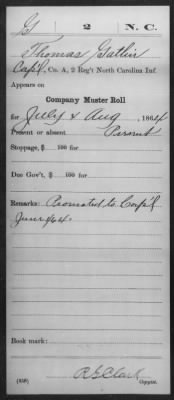 G 2 N. C.
Thomas Gatlin
Cap'l, Co. A, 2 Reg't North Carolina Inf.
Appears on
Company Muster Roll
for July & Aug, 1864
Present or absent Present
Stoppage, $ 100 for
Due Gov't, $ 100 for
Remarks: Promoted to Corp'l
June /64
Book mark:
R G Clark
(639) Copyist.